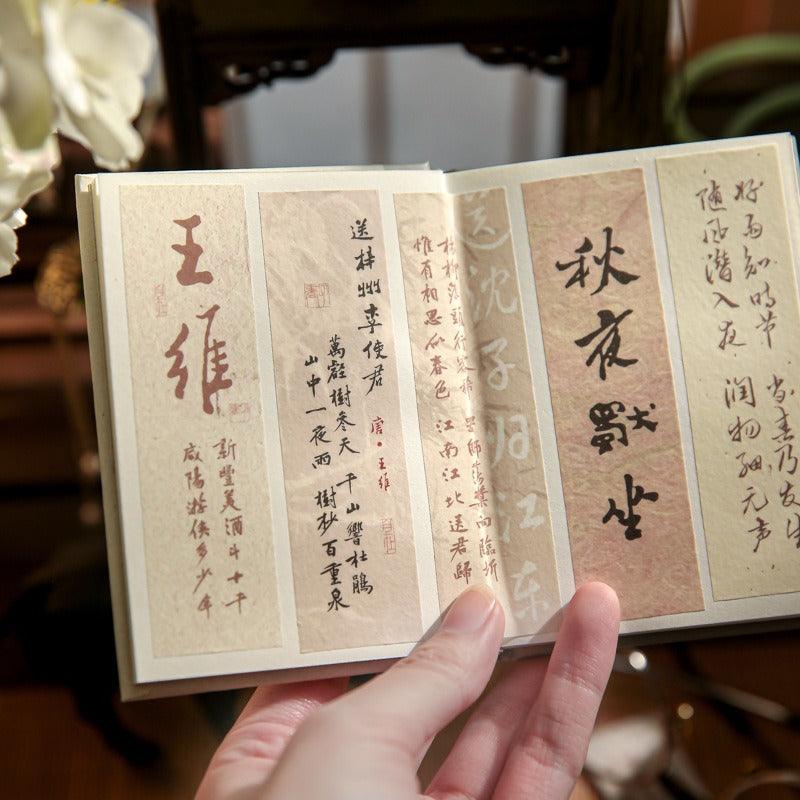 王維
新豐美酒斗十千
咸陽遊俠多少年
送梓州李使君
唐·王維
萬壑樹参天 千山響杜鵑
山中一夜雨 樹杪百重泉
送沈子归江东
杨柳渡頭行客稀 罟師蕩槳向臨圻
惟有相思似春色 江南江北送君歸
秋夜獨坐
好雨知时节 当春乃发生
随风潜入夜 润物细无声